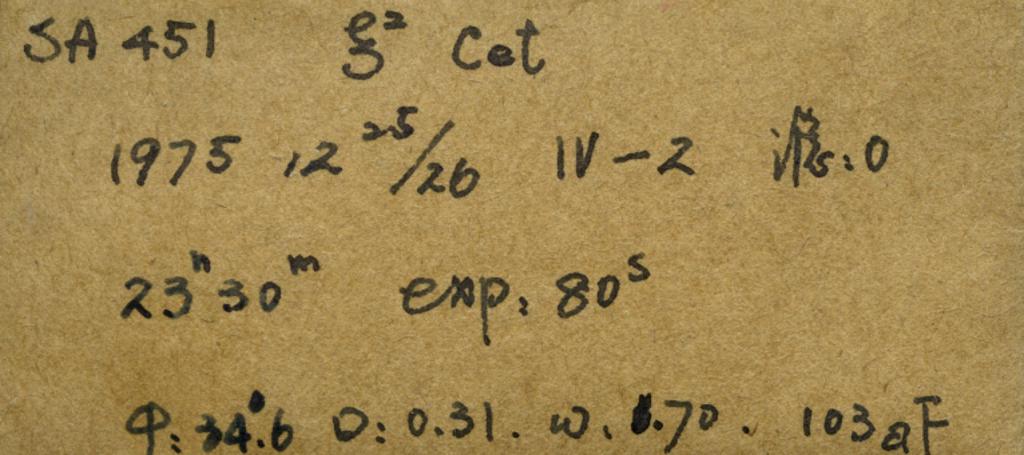 SA 451 ξ² Cet
1975 12 25/26 IV-2 :0
23ʰ30ᵐ exp: 80ˢ
φ: 34.6 D: 0.31. w. .70. 103aF